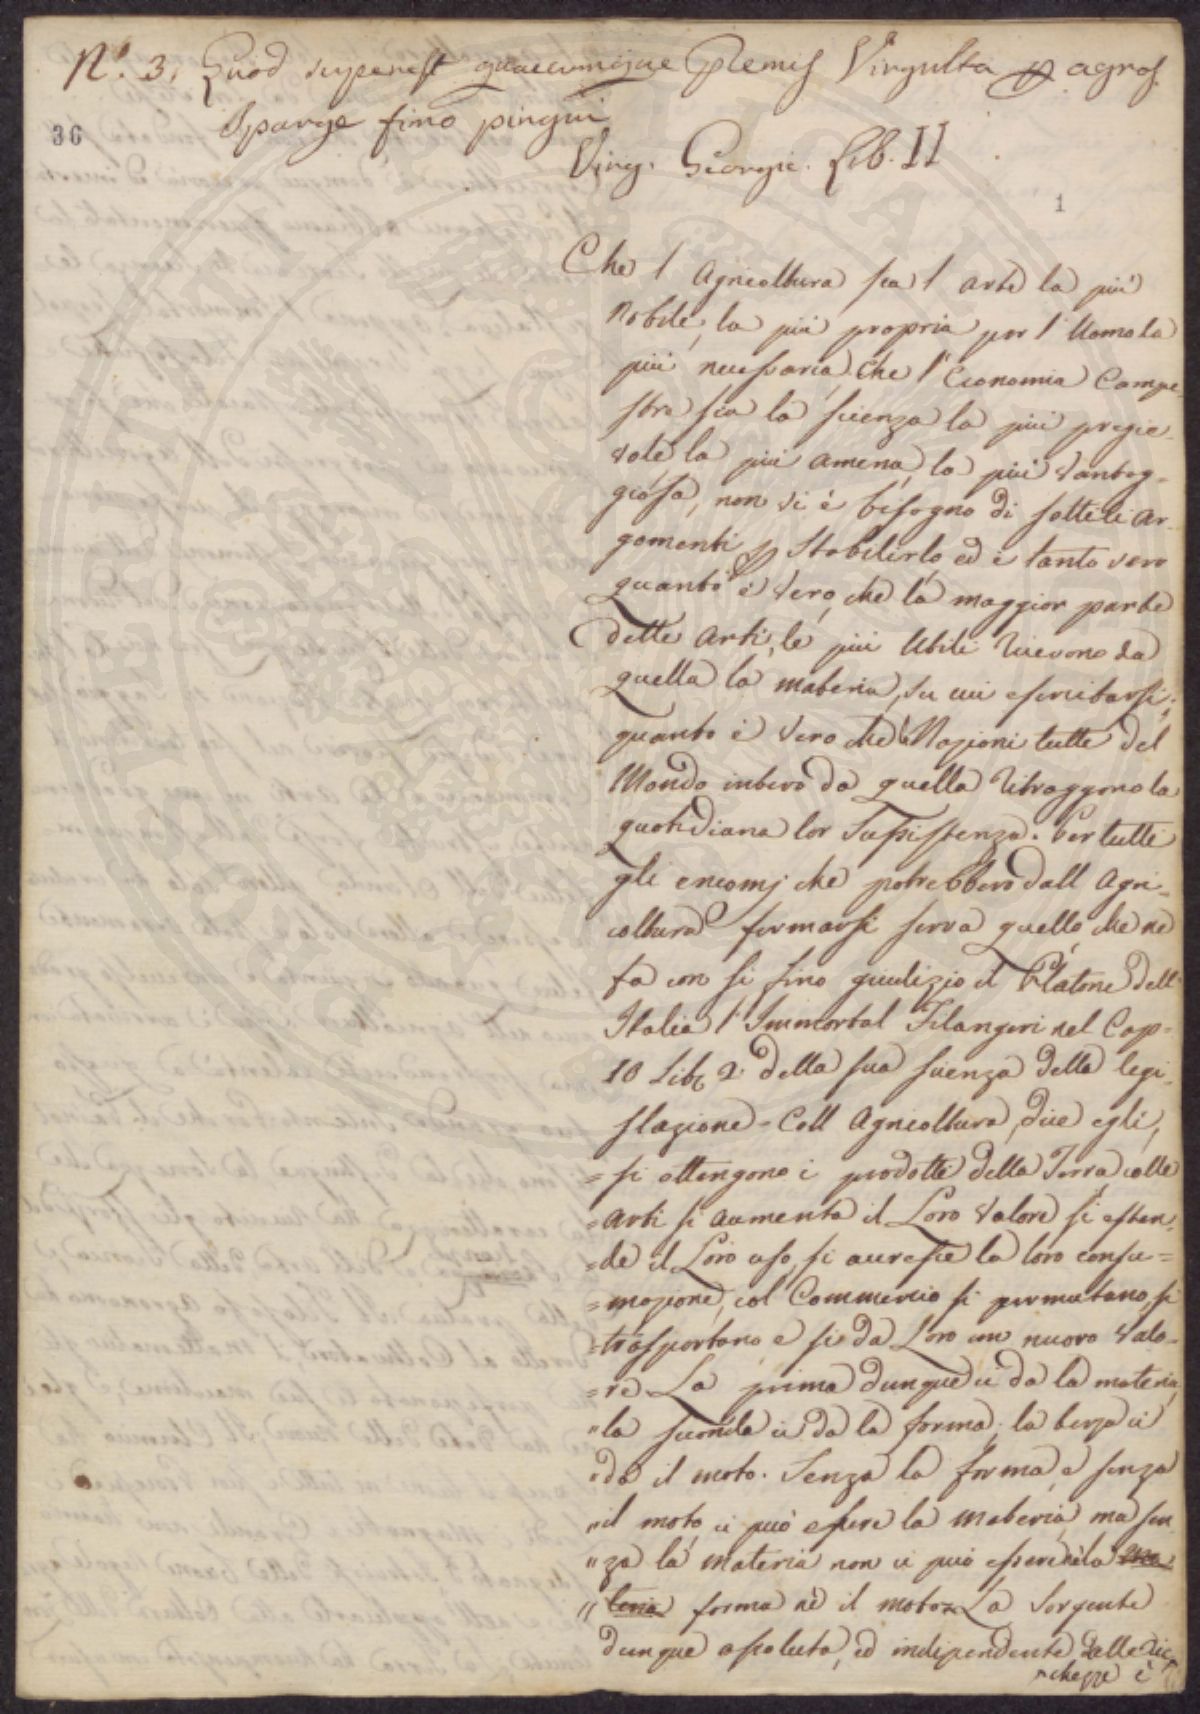 N.° 3. Quod superest quaecumque Premes Virgulta p agros
Sparge fimo pingui
36
Virg. Georgic. Lib. II
1
Che l'Agricoltura sia l'arte la più
Nobile, la più propria per l'Uomo la
più necessaria, che l'Economia Campe-
stre sia la scienza la più pregie-
vole la più amena, la più vantag-
giosa, non vi è bisogno di sottili Ar-
gomenti p Stabilirlo, ed è tanto vero
quanto è vero, che la maggior parte
delle Arti, le più Utili ricevono da
quella la materia, su cui esercitarsi;
quanto è vero che le Nazioni tutte del
Mondo intero da quella ritraggono la
quotidiana lor Sussistenza. Per tutti
gli encomj che potrebbero dall'Agri-
coltura formarsi serva quello, che ne
fa con si fino giudizio il Platone dell'
Italia l'Immortal Filangeri nel Cap-
10 Lib. 2. della sua scienza della legi-
slazione - Coll'Agricoltura, dice egli,
= si ottengono i prodotti della Terra colle
= Arti si aumenta il Loro valore si esten-
= de il Loro uso, si accresce la loro consu=
= mazione, col Commercio si permutano, si
= trasportano e si da Loro un nuovo valo-
= re. La prima dunque ci da la materia,
" la seconda ci da la forma, la terza ci
" da il moto. Senza la forma, e senza
" il moto, ci può essere la materia, ma sen
" za la materia non ci può essere nè la ma
" teria forma nè il moto = La Sorgente
dunque assoluta, ed indipendente dalle ric
chezze è